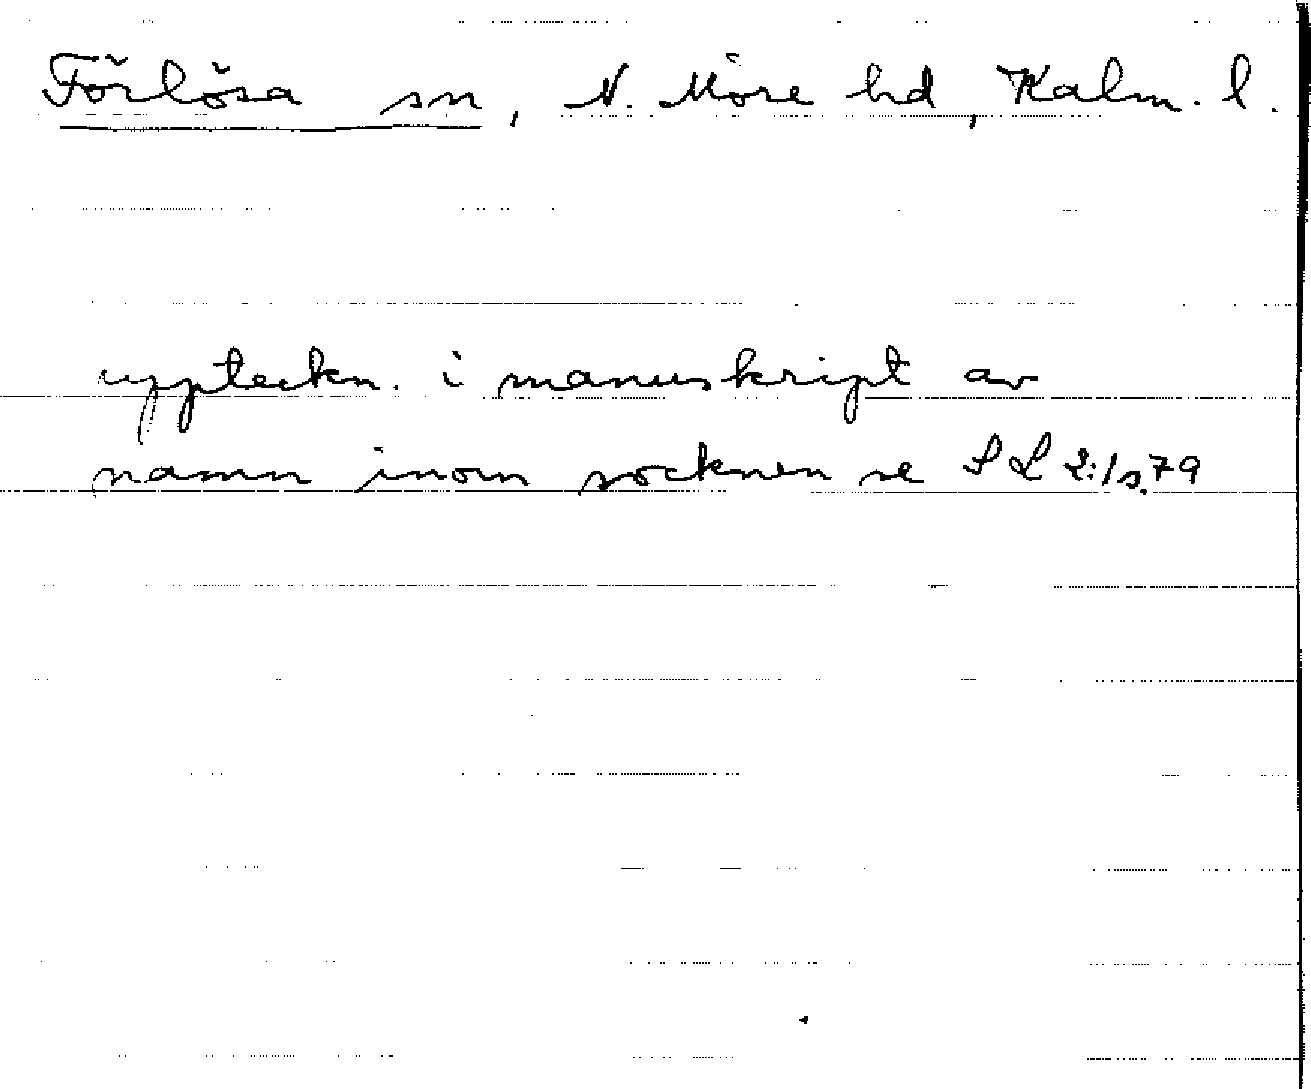 Förlösa sn, N. Möre hd, Kalm. l.
uppteckn. i manuskript av
namn inom socknen se SL 2:1 s. 79